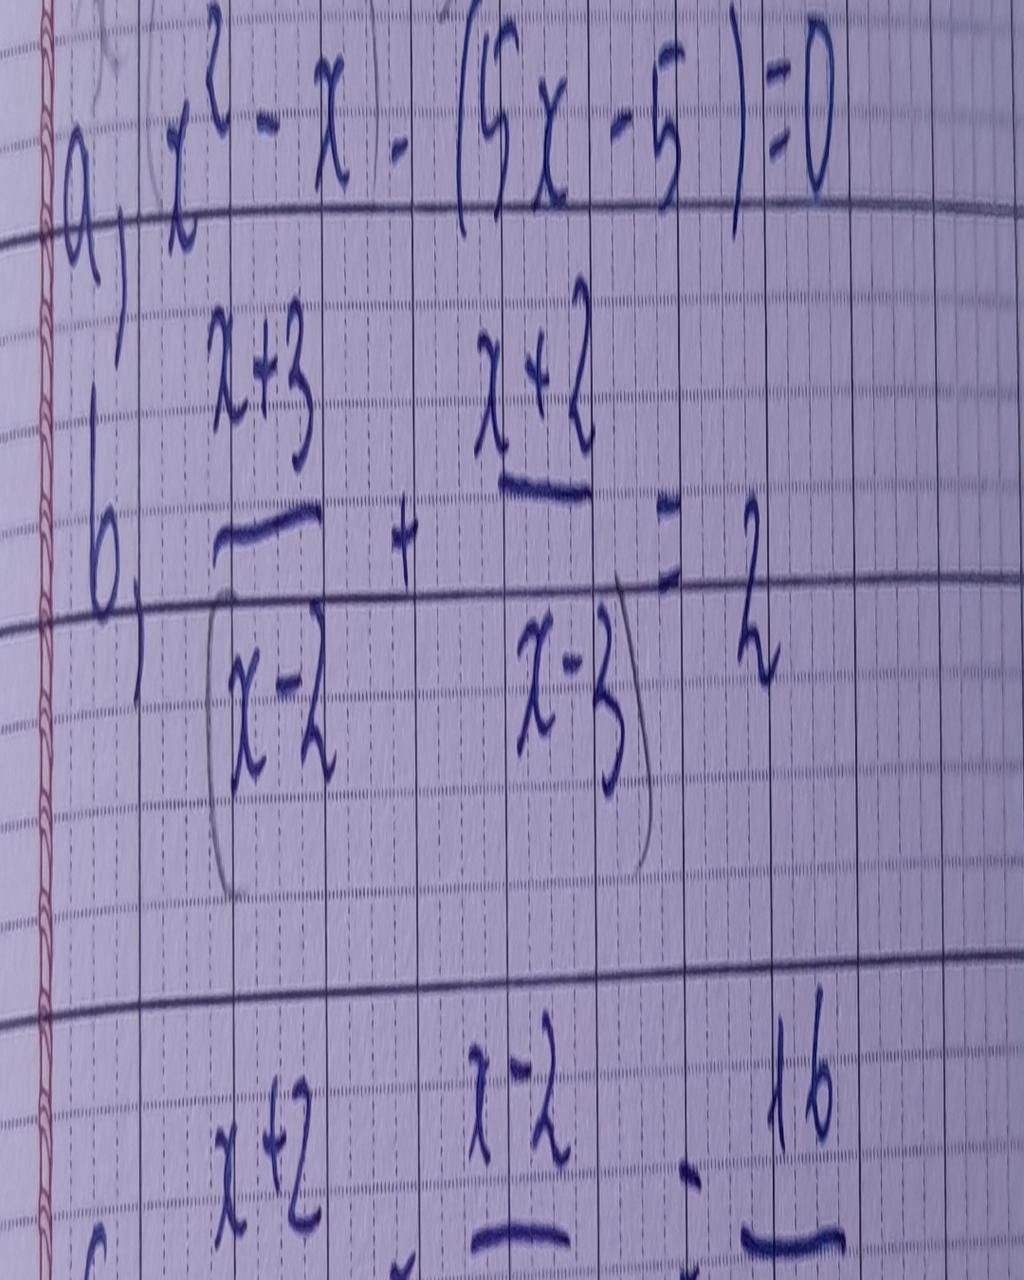 a, x² - x - (5x - 5) = 0
b, (x+3)/(x-2) + (x+2)/(x-3) = 2
x+2 x-2 = 16